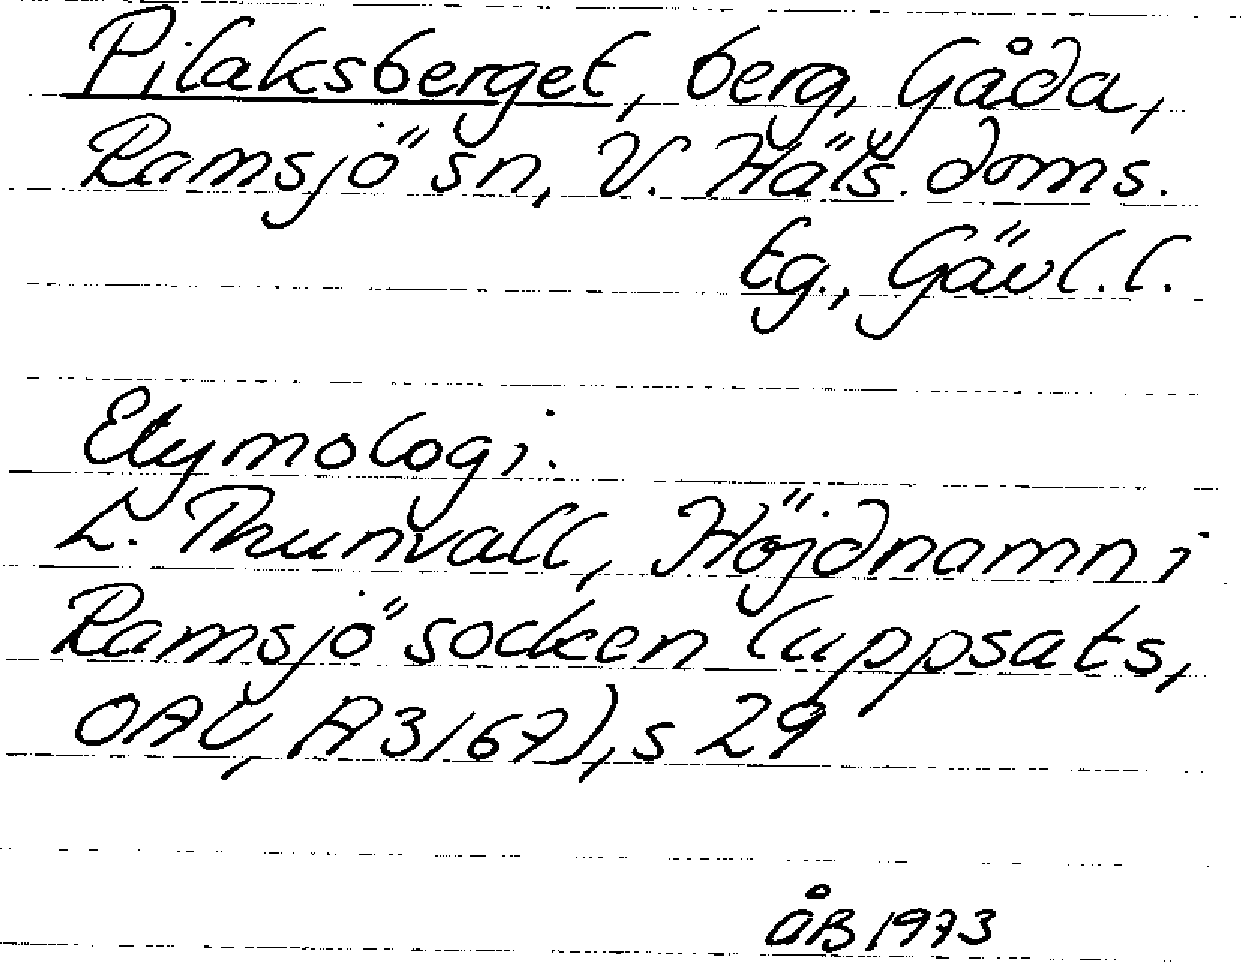 Pilaksberget, berg, Gåda,
Ramsjö sn, V. Häls. doms.
tg., Gävl. l.
Etymologi.
L. Thunvall, Höjdnamn i
Ramsjö socken (uppsats,
OAU, A3167), s 29
ÅB 1973